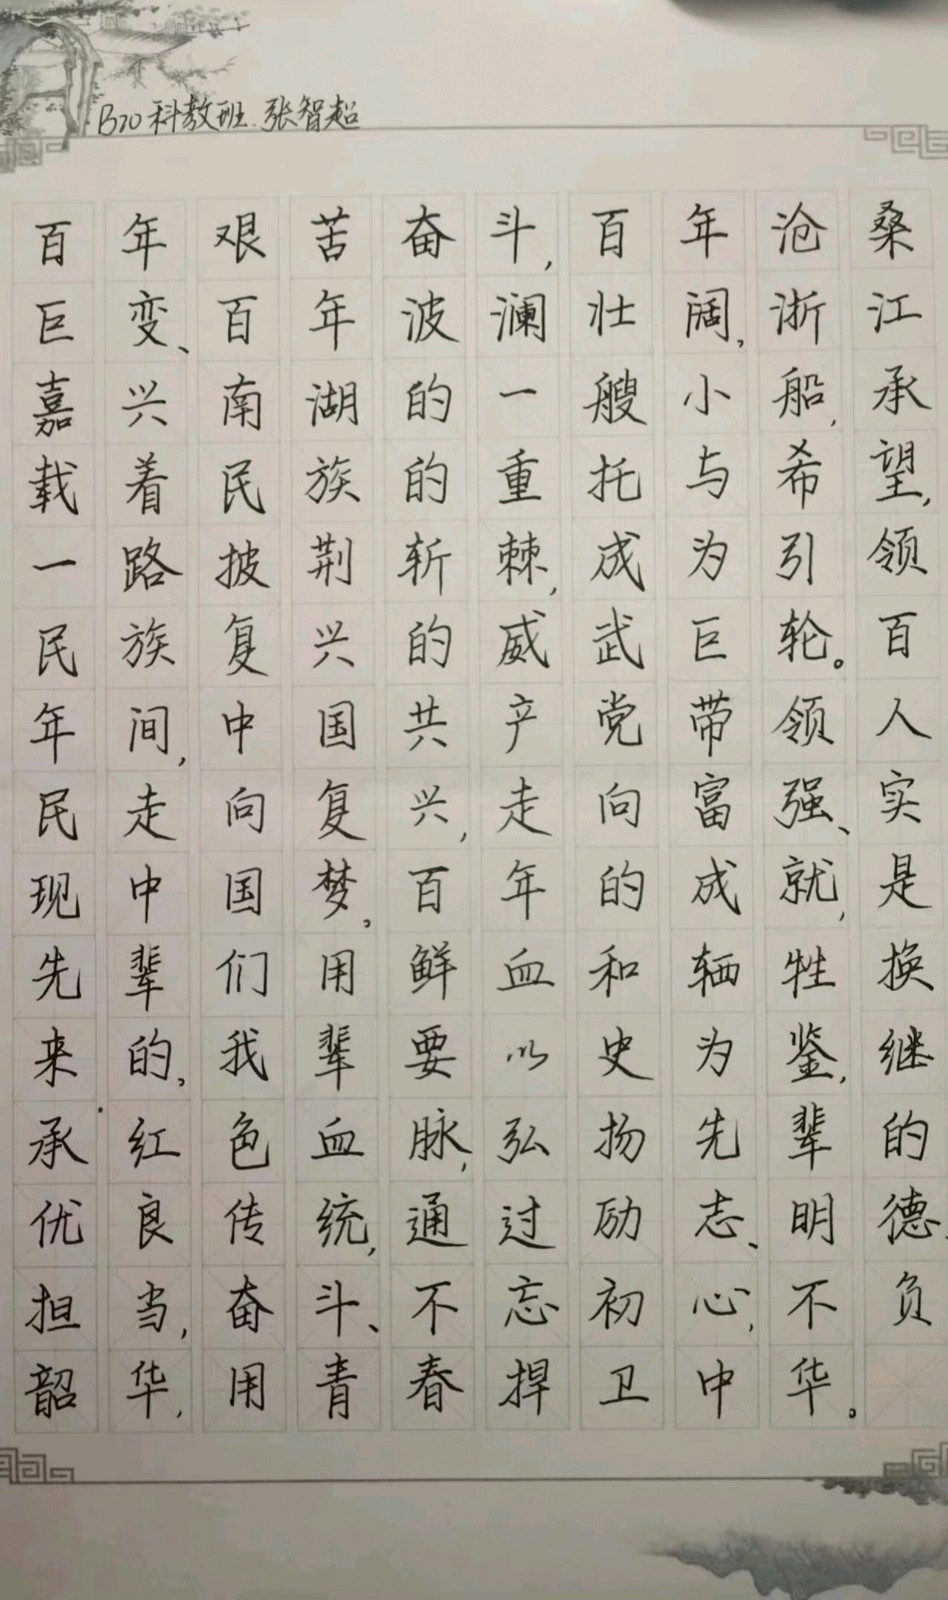 B70科教班.张智超
百年艰苦奋斗,百年沧桑
巨变、百年波澜壮阔,浙江
嘉兴南湖的一艘小船,承
载着民族的重托与希望,
一路披荆斩棘,成为引领
民族复兴的威武巨轮。百
年间,中国共产党带领人
民走向复兴,走向富强、实
现中国梦。百年的成就,是
先辈们用鲜血和牺牲换
来的,我辈要以史为鉴,继
承红色血脉,弘扬先辈的
优良传统,通过励志、明德,
担当,奋斗、不忘初心,不负
韶华,用青春捍卫中华。